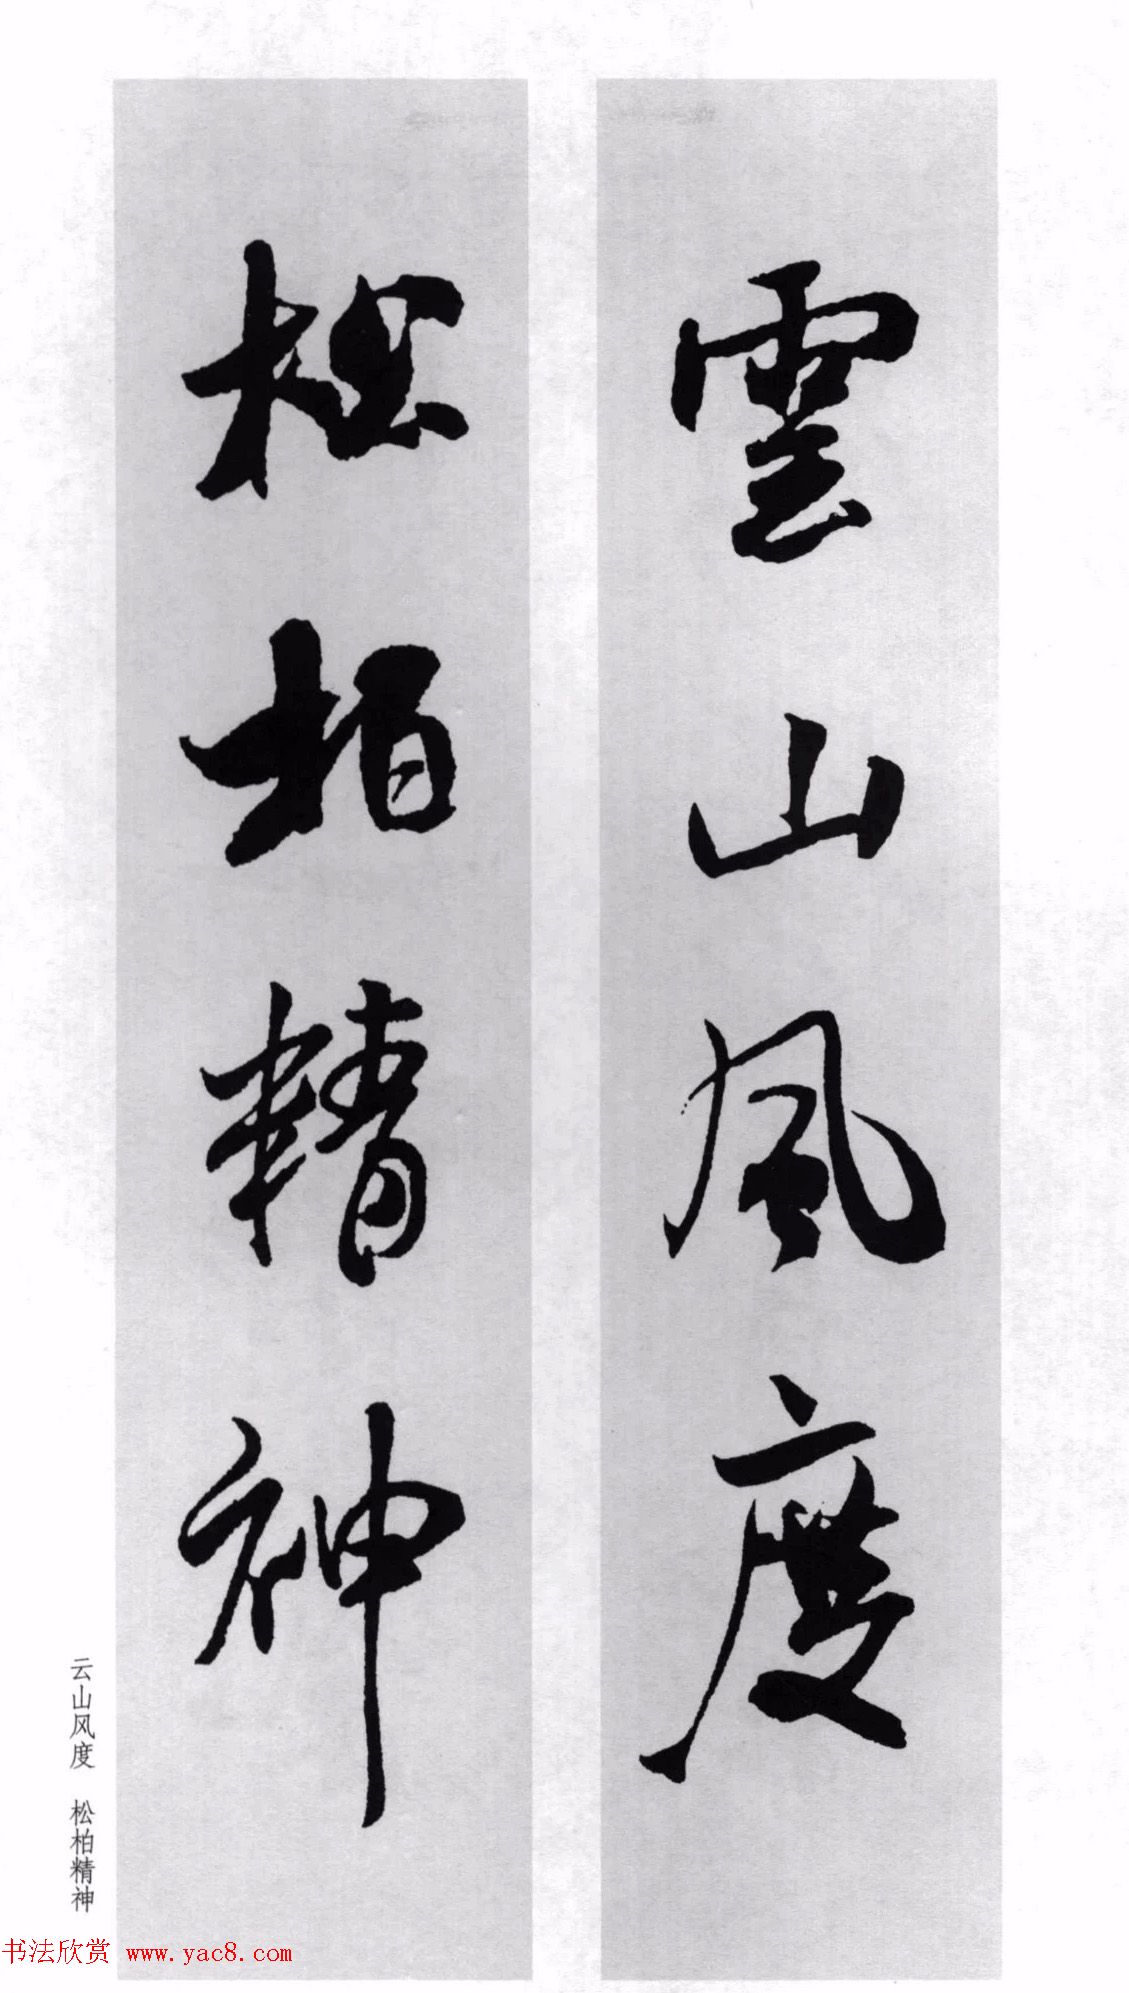 雲山風度
松柏精神
云山风度 松柏精神
书法欣赏 www.yac8.com